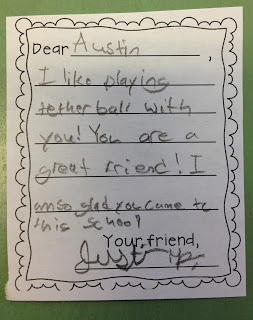 Dear Austin,
I like playing
tether ball with
you! You are a
great friend! I
am so glad you came to
this school
Your friend,